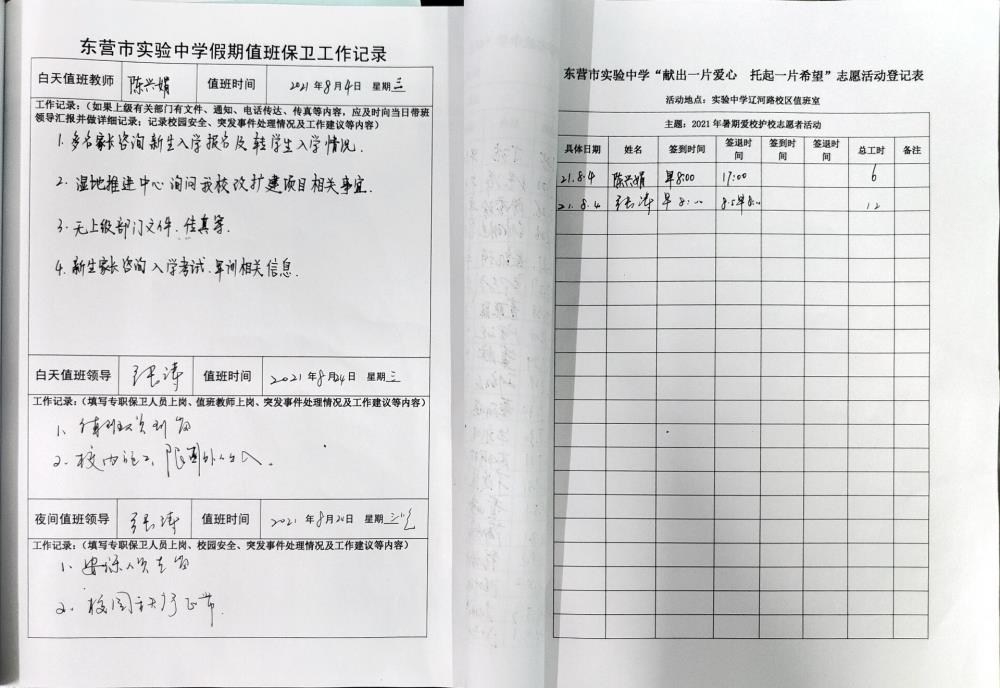 东营市实验中学假期值班保卫工作记录
白天值班教师 陈兴娟 值班时间 2021年8月4日 星期三
工作记录：（如果上级有关部门有文件、通知、电话传达、传真等内容，应及时向当日带班
领导汇报并做详细记录；记录校园安全、突发事件处理情况及工作建议等内容）
1. 多名家长咨询新生入学报名及转学生入学情况.
2. 湿地推进中心询问我校改扩建项目相关事宜.
3. 无上级部门文件、传真等.
4. 新生家长咨询入学考试、军训相关信息.
白天值班领导 张涛 值班时间 2021年8月4日 星期三
工作记录：（填写专职保卫人员上岗、值班教师上岗、突发事件处理情况及工作建议等内容）
1、值班人员到岗
2. 校内施工，限制外人出入.
夜间值班领导 张涛 值班时间 2021年8月日 星期三
工作记录：（填写专职保卫人员上岗、校园安全、突发事件处理情况及工作建议等内容）
1、安保人员在岗
2. 校园
东营市实验中学“献出一片爱心 托起一片希望”志愿活动登记表
活动地点：实验中学辽河路校区值班室
主题：2021年暑期爱校护校志愿者活动
具体日期 姓名 签到时间 签退时间 签到时间 签退时间 总工时 备注
21.8.4 陈兴娟 早8:00 17:00 6
21.8.4 张涛 早8:00 8.5早8:00 12